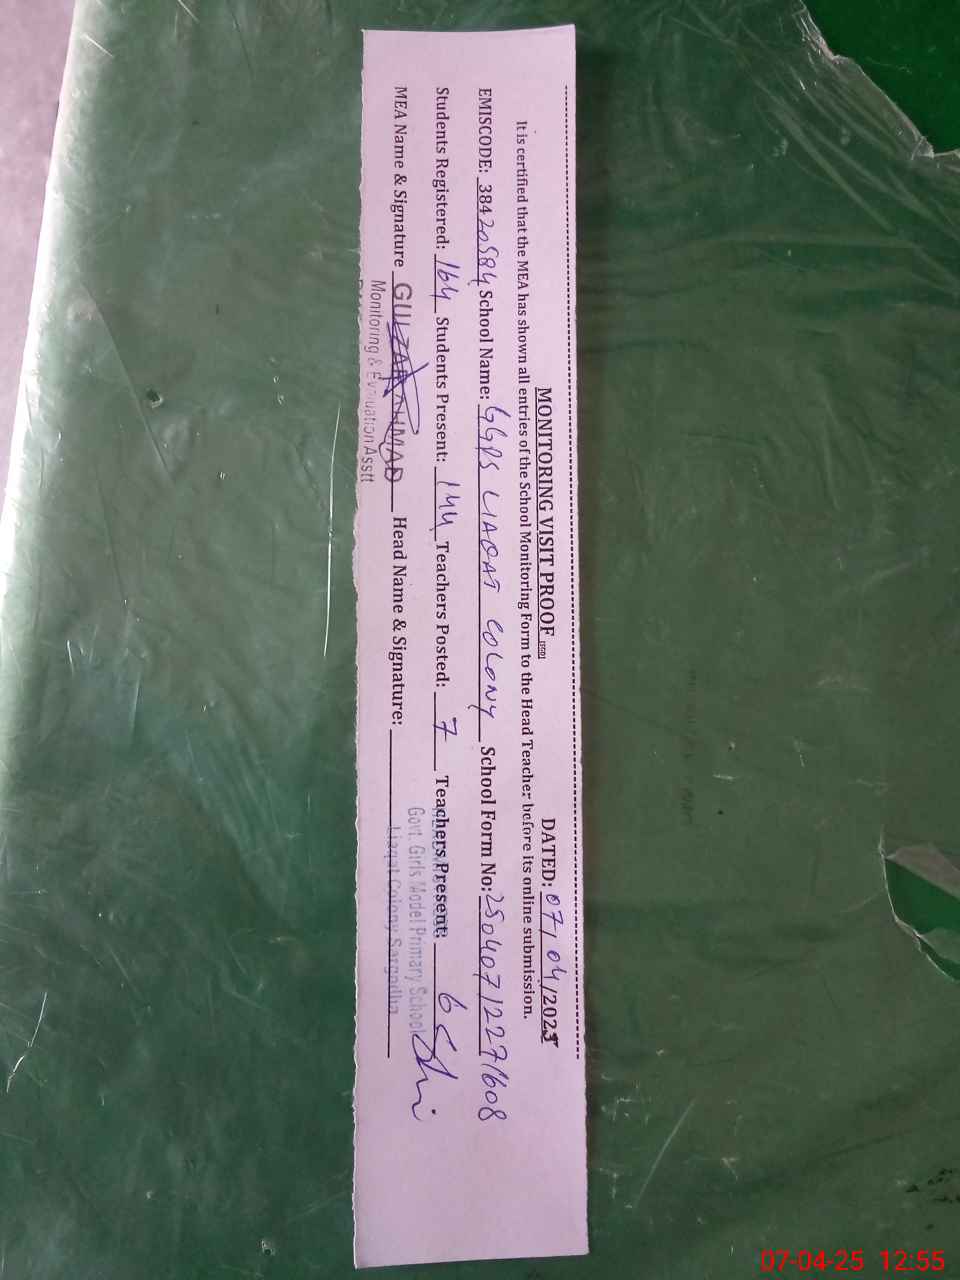 MONITORING VISIT PROOF [PSED] DATED: 07/04/2025
It is certified that the MEA has shown all entries of the School Monitoring Form to the Head Teacher before its online submission.
EMISCODE: 38420584 School Name: GGPS LIAQAT COLONY School Form No: 25040712271608
Students Registered: 164 Students Present: 144 Teachers Posted: 7 Teachers Present: 6
MEA Name & Signature GULZAR AHMAD Head Name & Signature:
Monitoring & Evaluation Asstt
Govt. Girls Model Primary School
Liaqat Colony Sargodha
07-04-25 12:55